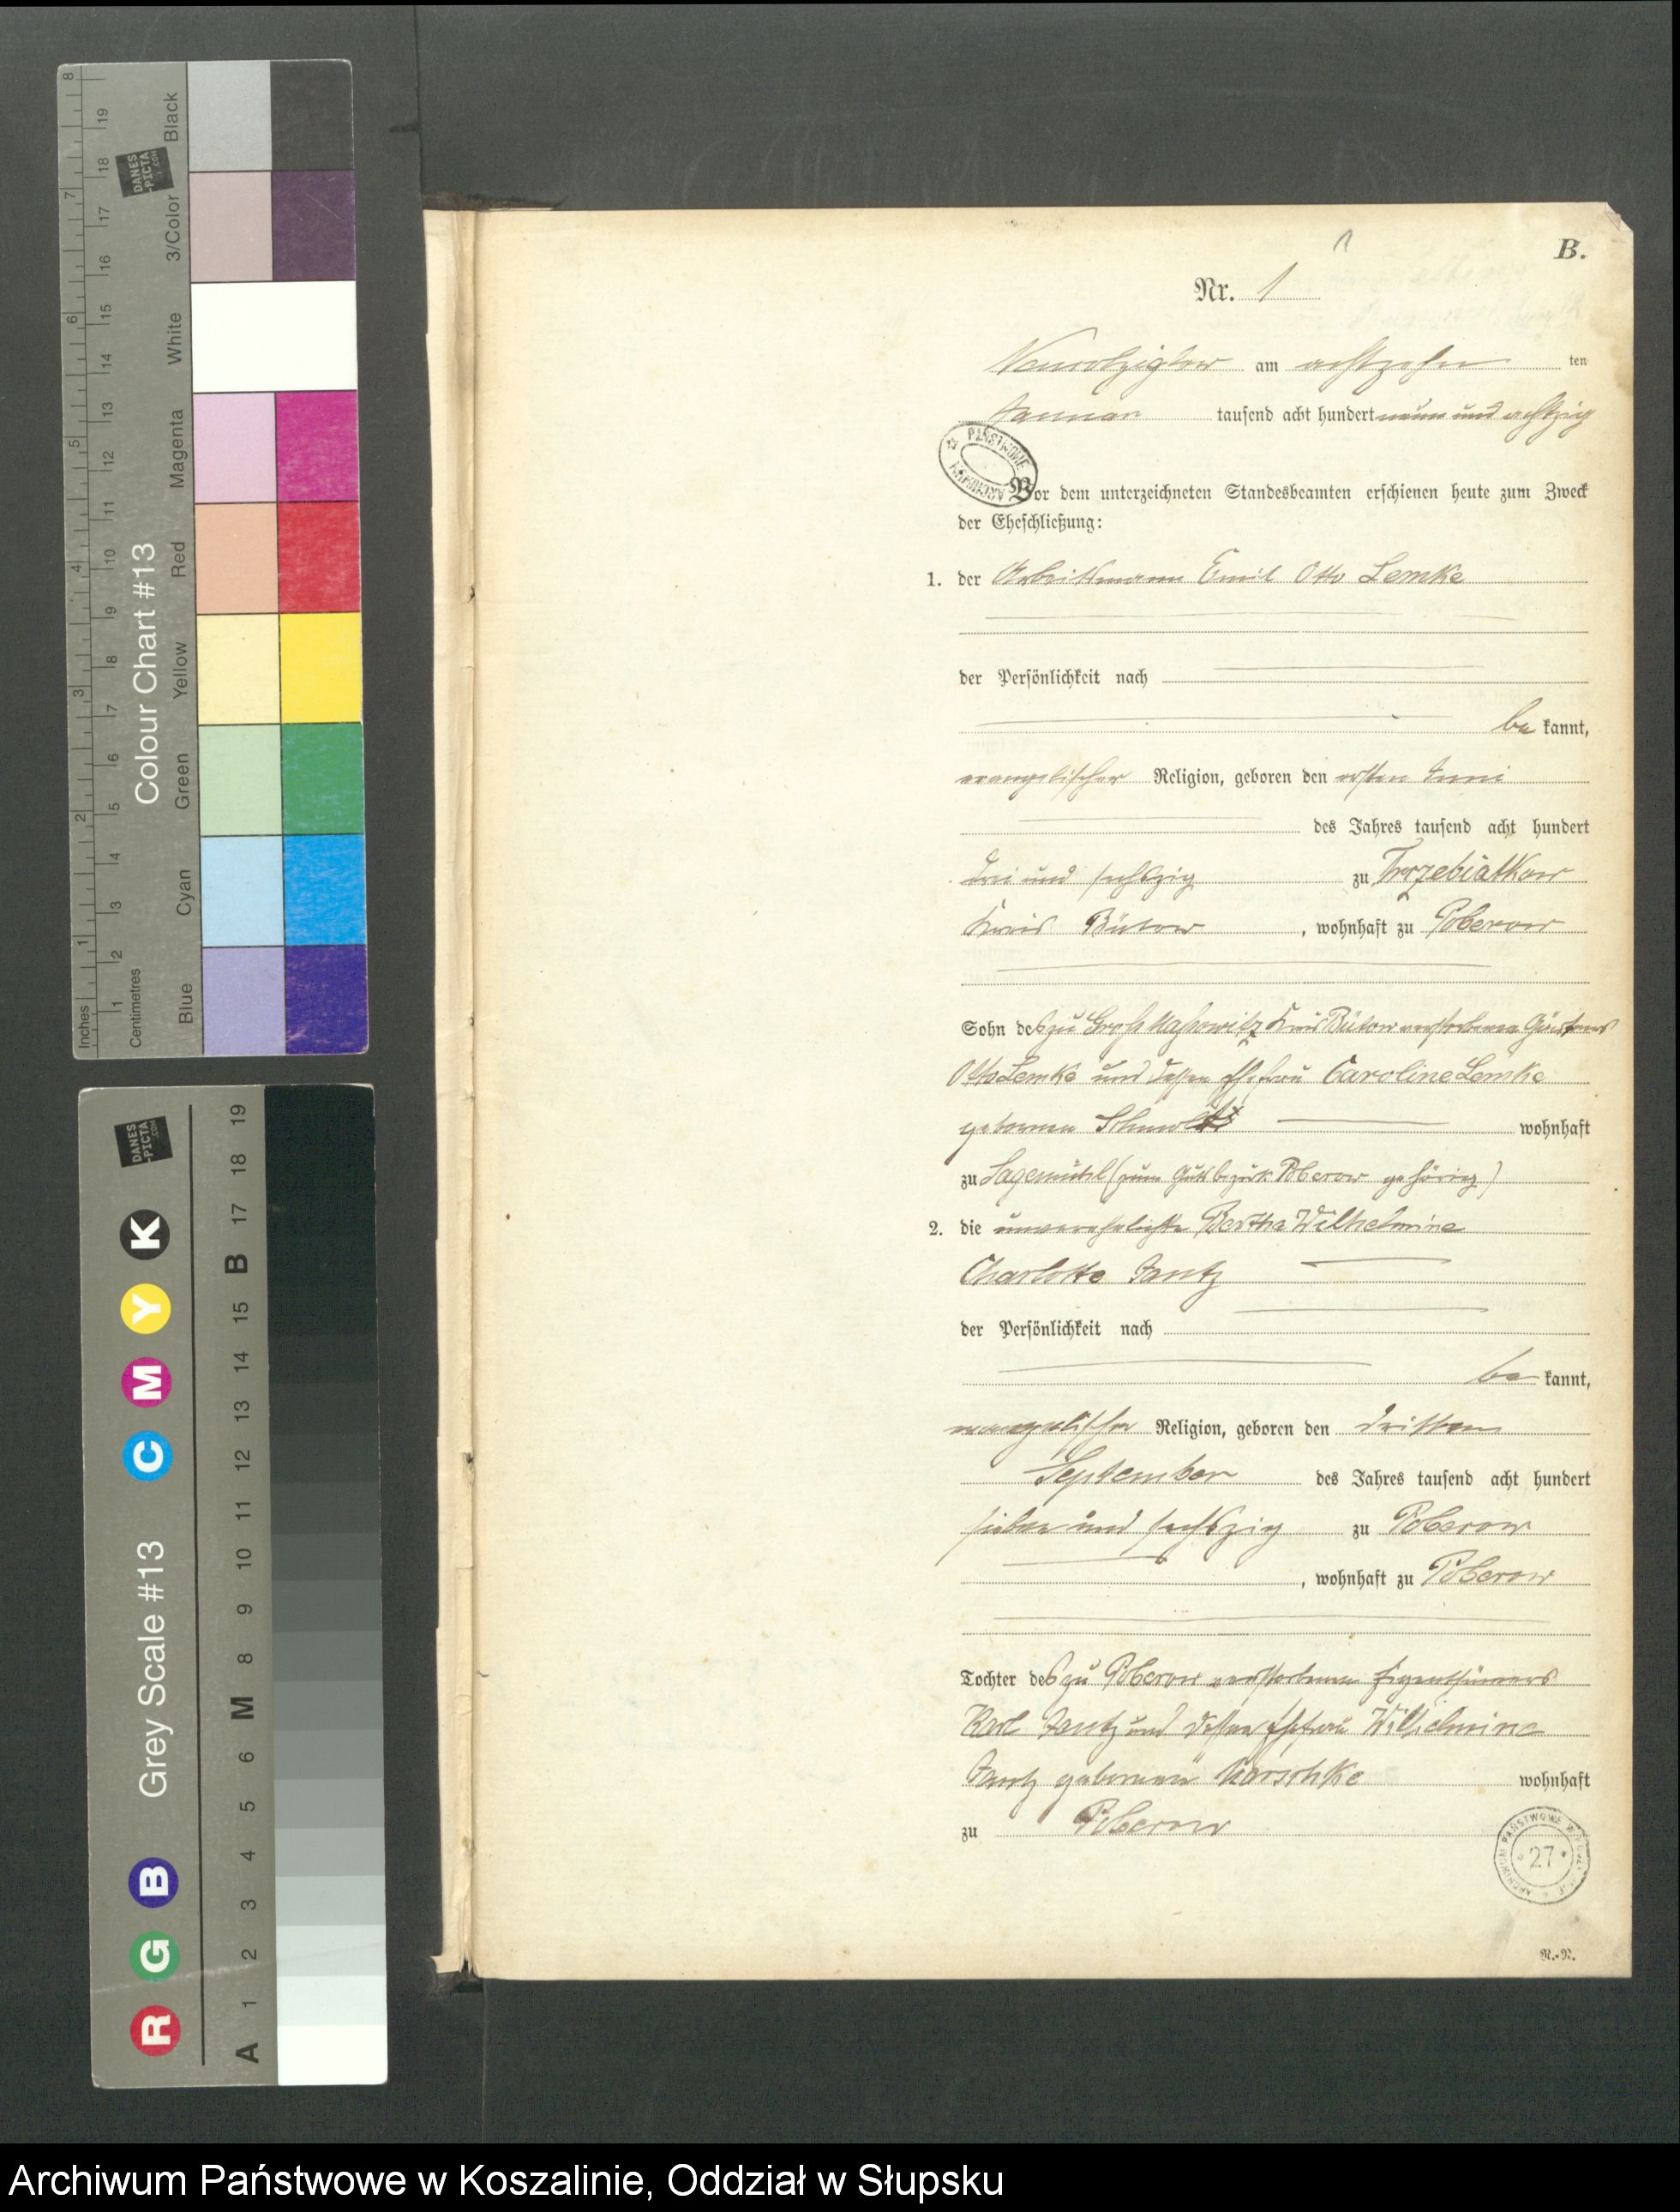 B.
Nr. 1
am achtzehn ten
Januar tausend acht hundert neun und achtzig
Vor dem unterzeichneten Standesbeamten erschienen heute zum Zweck
der Eheschließung:
1. der Arbeitsmann Emil Otto Lemke
der Persönlichkeit nach
be kannt,
evangelischer Religion, geboren den ersten Juni
des Jahres tausend acht hundert
drei und sechszig zu Trzebiatkow
Kreis Bütow, wohnhaft zu Poberow
Sohn des zu Groß Kreis Bütow verstorbenen
Otto Lemke und dessen Ehefrau Caroline Lemke
geborenen wohnhaft
zu Sagemühl (zum Gutsbezirk Poberow gehörig)
2. die unverehelichte Bertha Wilhelmine
Charlotte Jantz
der Persönlichkeit nach
be kannt,
evangelischer Religion, geboren den dritten
September des Jahres tausend acht hundert
sieben und sechszig zu Poberow
, wohnhaft zu Poberow
Tochter des zu Poberow verstorbenen Eigenthümers
Karl Jantz und dessen Ehefrau Wilhelmine
Jantz geborenen wohnhaft
zu Poberow
27
N.-N.
Inches 1 2 3 4 5 6 7 8
Centimetres 1 2 3 4 5 6 7 8 9 10 11 12 13 14 15 16 17 18 19
Colour Chart #13
Blue Cyan Green Yellow Red Magenta White 3/Color Black
DANES
-PICTA
.COM
Grey Scale #13
R G B C M Y K
A 1 2 3 4 5 6 M 8 9 10 11 12 13 14 15 B 17 18 19
DANES
-PICTA
.COM
Archiwum Państwowe w Koszalinie, Oddział w Słupsku